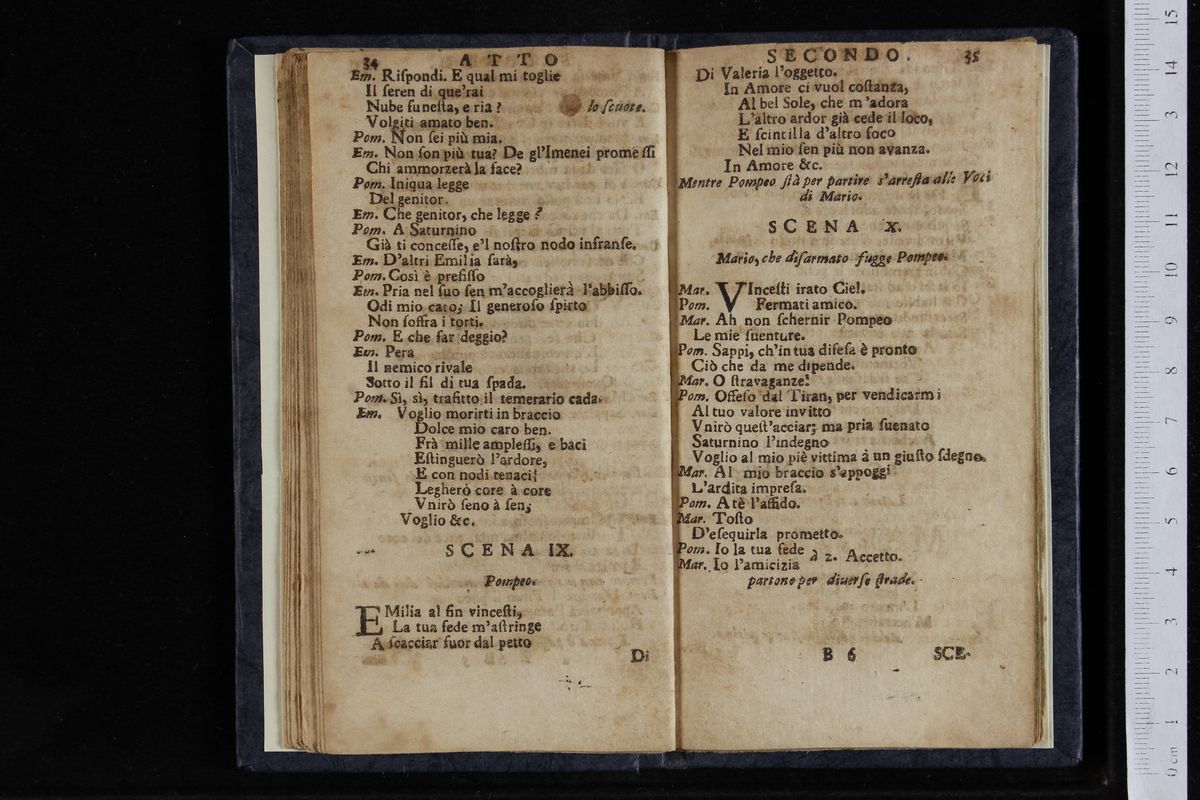 34 ATTO
Em. Riſpondi. E qual mi toglie
Il ſeren di que'rai
Nube funeſta, e ria? lo ſcuote.
Volgiti amato ben.
Pom. Non ſei più mia.
Em. Non ſon più tua? De gl'Imenei promeſſi
Chi ammorzerà la face?
Pom. Iniqua legge
Del genitor.
Em. Che genitor, che legge?
Pom. A Saturnino
Già ti conceſſe, e'l noſtro nodo infranſe.
Em. D'altri Emilia ſarà,
Pom. Così è prefiſſo
Em. Pria nel ſuo ſen m'accoglierà l'abbiſſo.
Odi mio caro; Il generoſo ſpirto
Non ſoffra i torti.
Pom. E che far deggio?
Em. Pera
Il nemico rivale
Sotto il fil di tua ſpada.
Pom. Sì, sì, trafitto il temerario cada.
Em. Voglio morirti in braccio
Dolce mio caro ben.
Frà mille ampleſſi, e baci
Eſtinguerò l'ardore,
E con nodi tenaci
Legherò core à core
Vnirò ſeno à ſen,
Voglio &c.
SCENA IX.
Pompeo.
EMilia al fin vinceſti,
La tua fede m'aſtringe
A ſcacciar fuor dal petto
Di
SECONDO. 35
Di Valeria l'oggetto.
In Amore ci vuol coſtanza,
Al bel Sole, che m'adora
L'altro ardor già cede il loco,
E ſcintilla d'altro foco
Nel mio ſen più non avanza.
In Amore &c.
Mentre Pompeo ſtà per partire s'arreſta alle Voci
di Mario.
SCENA X.
Mario, che diſarmato fugge Pompeo.
Mar. VInceſti irato Ciel.
Pom. Fermati amico.
Mar. Ah non ſchernir Pompeo
Le mie ſuenture.
Pom. Sappi, ch'in tua difeſa è pronto
Ciò che da me dipende.
Mar. O ſtravaganze!
Pom. Offeſo dal Tiran, per vendicarmi
Al tuo valore invitto
Vnirò queſt'acciar; ma pria ſuenato
Saturnino l'indegno
Voglio al mio piè vittima à un giuſto ſdegno.
Mar. Al mio braccio s'appoggi
L'ardita impreſa.
Pom. A tè l'affido.
Mar. Toſto
D'eſequirla prometto.
Pom. Io la tua fede
à 2. Accetto.
Mar. Io l'amicizia
partono per diuerſe ſtrade.
B 6 SCE-
0 cm 1 2 3 4 5 6 7 8 9 10 11 12 13 14 15